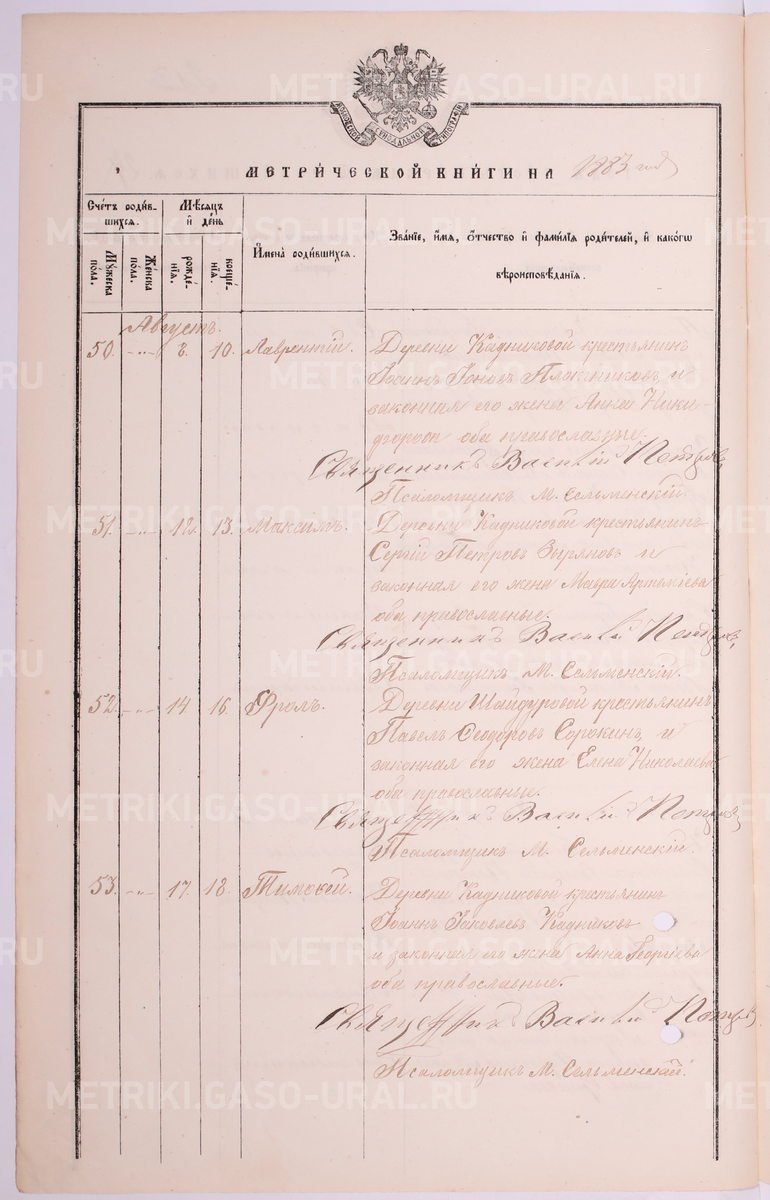 МЕТРИ́ЧЕСКОЙ КНИ́ГИ НА 1883 годъ
Сче́тъ роди́в-
шихся.
Мѣ́сяцъ
и҆ де́нь
И҆мена̀ роди́вшихся.
Зва́нїе, и҆́мя, ѻ҆́тчество и҆ фами́лїя роди́телей, и҆ како́гѡ
вѣроисповѣ́данїя.
Мꙋ́жеска
по́ла.
Же́нска
по́ла.
рожде́-
нїя.
креще́-
нїя.
Августъ.
50. -„- 8. 10. Лаврентій. Деревни Кадниковой крестьянинъ
Іоаннъ Іоновъ Плотниковъ, и
законная его жена Анна Ники-
форова оба православные.
Священникъ Василій Петровъ
Псаломщикъ М. Сельменскій.
51. -„- 12. 13. Максимъ. Деревни Кадниковой крестьянинъ
Сергій Петровъ Зыряновъ и
законная его жена Мавра Артеміева
оба православные.
Священникъ Василій Петровъ
Псаломщикъ М. Сельменскій.
52. -„- 14 16. Фролъ. Деревни Шайдуровой крестьянинъ
Павелъ Ѳеодоровъ Сорокинъ, и
законная его жена Елена Николаева
оба православные.
Священникъ Василій Петровъ
Псаломщикъ М. Сельменскій.
53. -„- 17. 18. Тимоѳей. Деревни Кадниковой крестьянинъ
Іоаннъ Іаковлевъ Кадниковъ
и законная его жена Анна Георгіева
оба православные.
Священникъ Василій Петровъ
Псаломщикъ М. Сельменскій.
METRIKI.GASO-URAL.RU